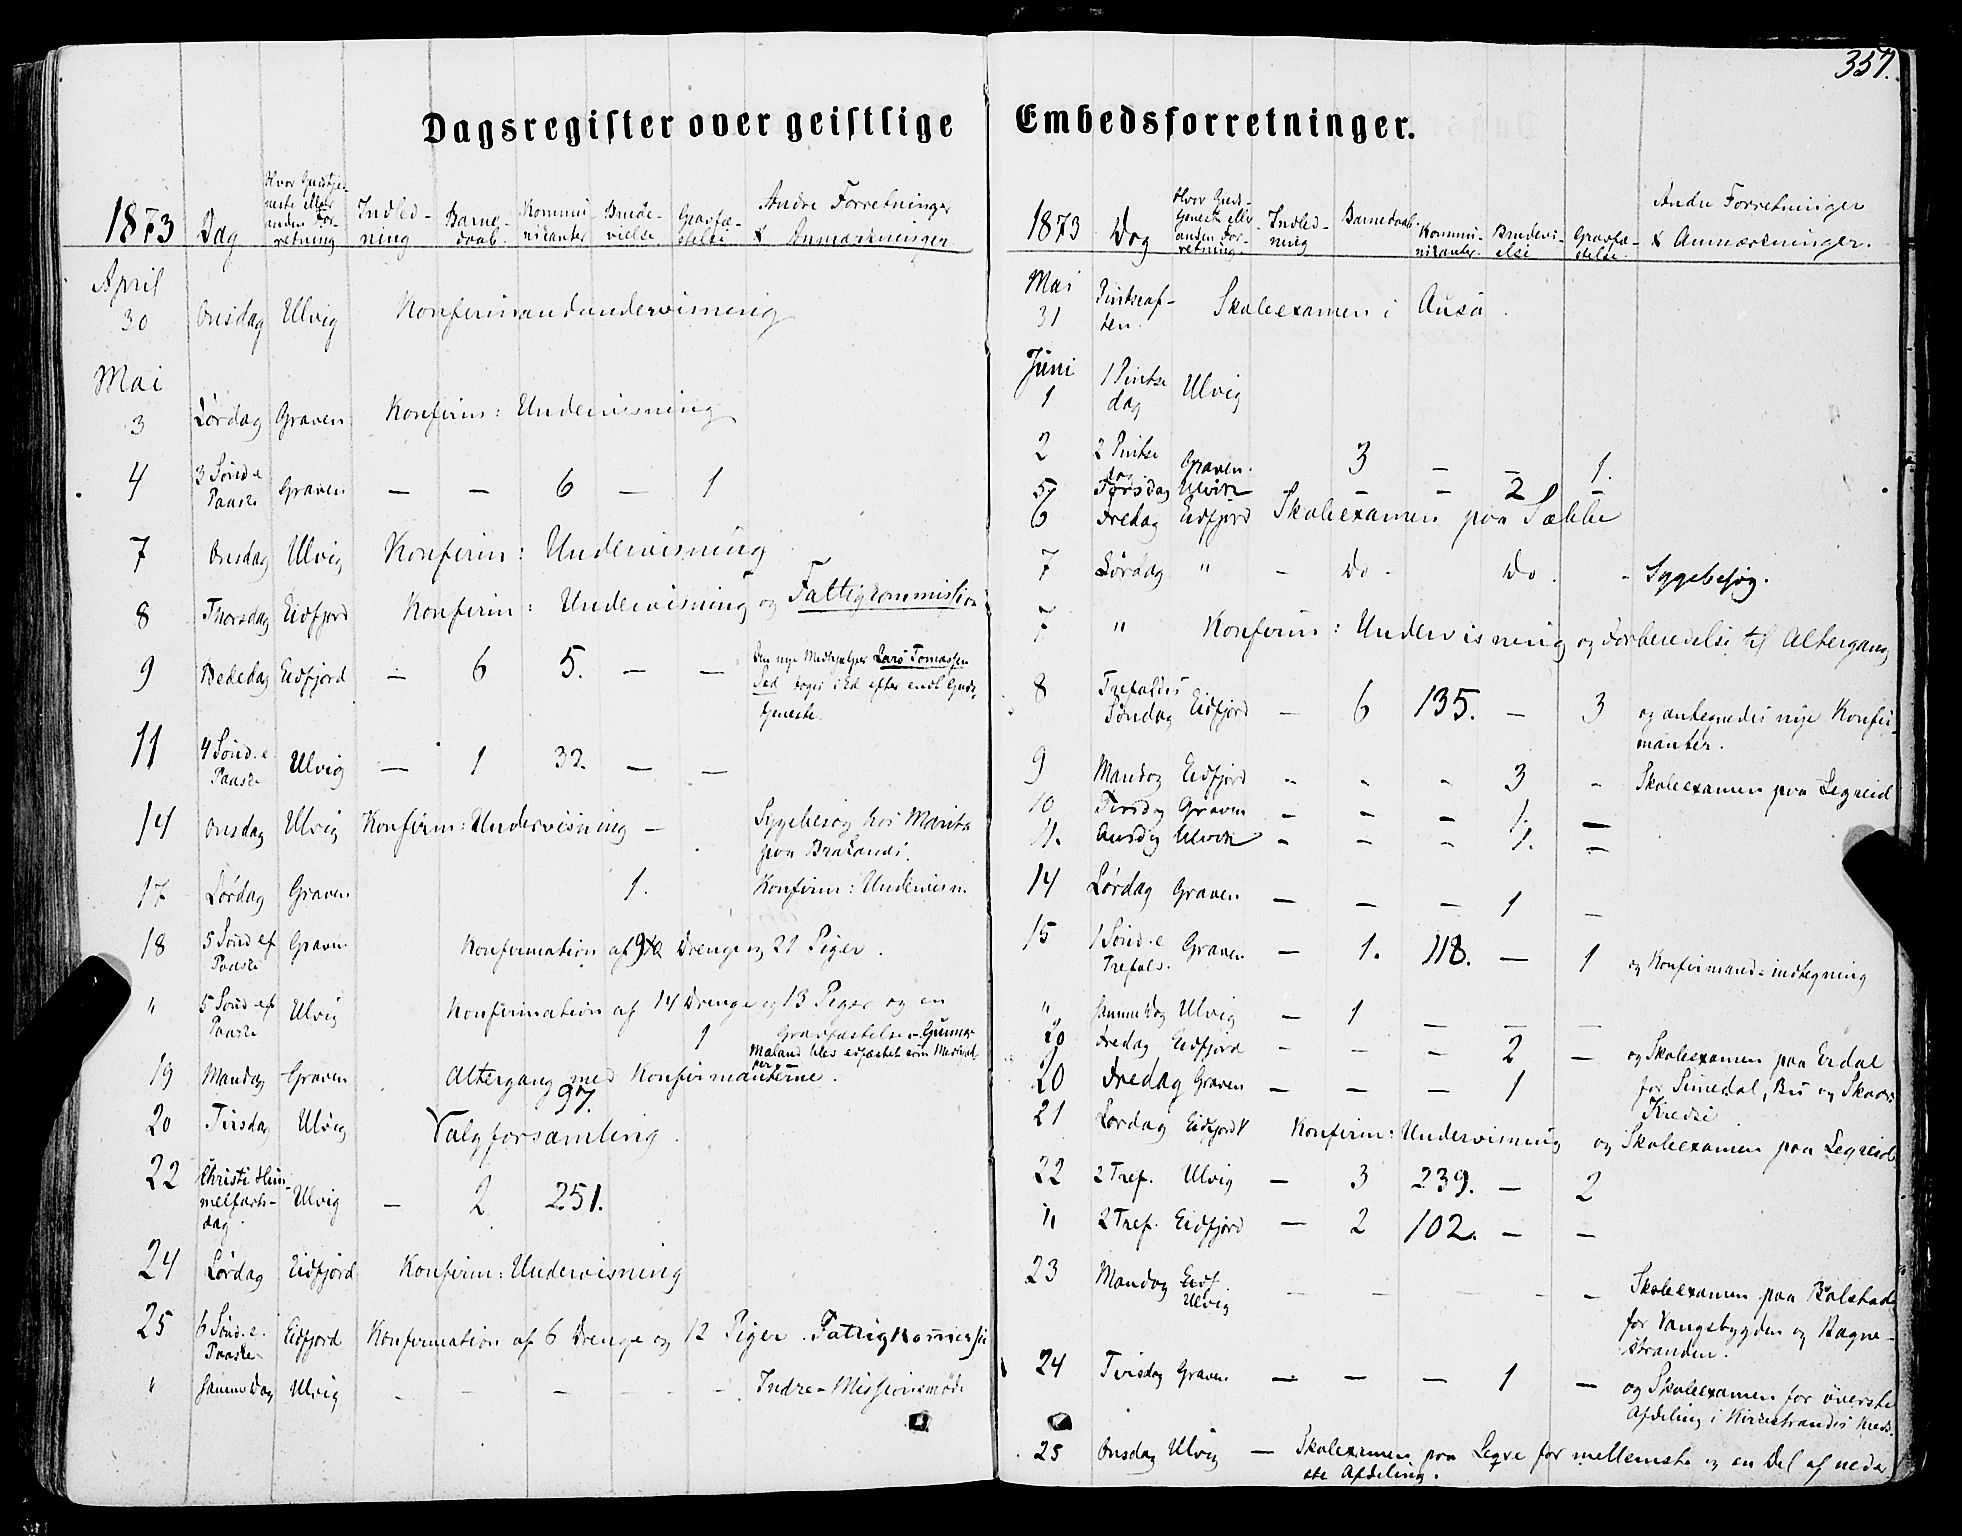 357.
Dagsregister over geistlige Embedsforretninger.
1873 Dag Hvor Gudstjeneste eller anden Forretning Indledning Barnedaab Kommunikanter Brudevielse Gravfæstelse Andre Forretninger & Anmærkninger.
April
30 Onsdag Ulvig Konfirmandundervisning
Mai
3 Lørdag Graven Konfirm: Undervisning
4 3 Sønd. e Paaske Graven — — 6 — 1
7 Onsdag Ulvig Konfirm: Undervisning
8 Thorsdag Eidfjord Konfirm: Undervisning og Fattigkommission
9 Bededag Eidfjord — 6 5. — — Den nye Medhjælper Lars Tomassen
Sed toges i Ed efter endt Guds-
tjeneste.
11 4 Sønd. e Paaske Ulvig — 1 32. — —
14 Onsdag Ulvig Konfirm: Undervisning — Sygebesøg hos Marita
paa Brakanes.
17 Lørdag Graven 1. Konfirm: Undervisn.
18 5 Sønd ef Paaske Graven Konfirmation af Drenge og 21 Piger.
" 5 Sønd ef Paaske Ulvig Konfirmation af 14 Drenge og 13 Piger og en
1 Gravfæstelse - Gunnar
Maland blev edfæstet som Medhjælper.
19 Mandag Graven Altergang med Konfirmanterne.
97.
20 Tirsdag Ulvig Valgforsamling.
22 Christi Himmelfarts-dag. Ulvig — 2 251.
24 Lørdag Eidfjord Konfirm: Undervisning
25 6 Sønd. e. Paaske Eidfjord Konfirmation af 6 Drenge og 12 Piger. Fattigkommission
" samme Dag Ulvig - - - - - Indre-Missionsmøde
1873 Dag Hvor Gudstjeneste eller anden Forretning. Indledning Barnedaab Kommunikanter. Brudevielse Gravfæstelse. Andre Forretninger & Anmærkninger.
Mai
31 Pintseaften. Skoleexamen i Ausa.
Juni
1 1 Pintse dag Ulvig
2 2 Pintse dag Graven. 3 — — 1.
5 Torsdag Ulvik - - - 2 -
6 Fredag Eidfjord Skoleexamen paa Sæbbe
7 Lørdag " - Do - Do. - Sygebesøg.
7 " Konfirm: Undervisning og Forberedelse til Altergang
8 Trefoldis Søndag Eidfjord — 6 135. — 3 og antegnedes nye Konfir-
manter.
9 Mandag Eidfjord - - - 3 - Skoleexamen paa Legreid
10 Tirsdag Graven - - - 1. —
11. Onsdag Ulvik - - - 1. —
14 Lørdag Graven — — — 1 —
15 1 Sønd. e Trefols. Graven — 1. 118. — 1 og Konfirmand-indtegning
" samme Dag Ulvig — 1 — — —
20 Fredag Eidfjord - - - 2 — og Skoleexamen paa Erdal
20 Fredag Graven — — — 1 for Simedal, Bu og Skaars
Kredse
21 Lørdag Eidfjord Konfirm: Undervisning og Skoleexamen paa Legreid
22 2 Tref. Ulvig — 3 239. — 2
" 2 Tref. Eidfjord — 2 102. — —
23 Mandag Eidf Ulvig — — — - - Skoleexamen paa Bolstad
for Vangsbygden og Hagne-
stranden.
24 Tirsdag Graven — — — 1 — og Skoleexamen for øverste
Afdeling i Kirkestrandes Kreds.
25 Onsdag Ulvig — Skoleexamen paa Legre for mellemste og en Del af neder
ste Afdeling.